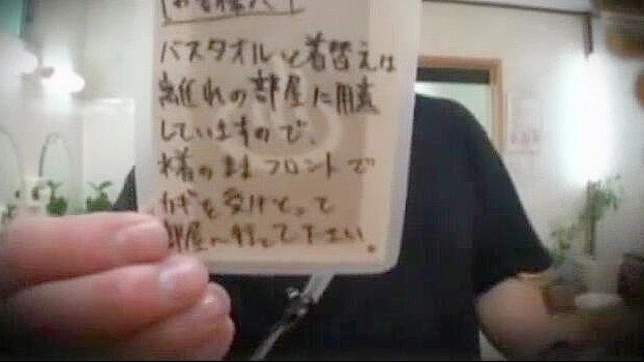 お客様へ
バスタオルと着替えは
離れの部屋に用意
していますので、
そのままフロントで
カギを受けとって
部屋へ行って下さい。